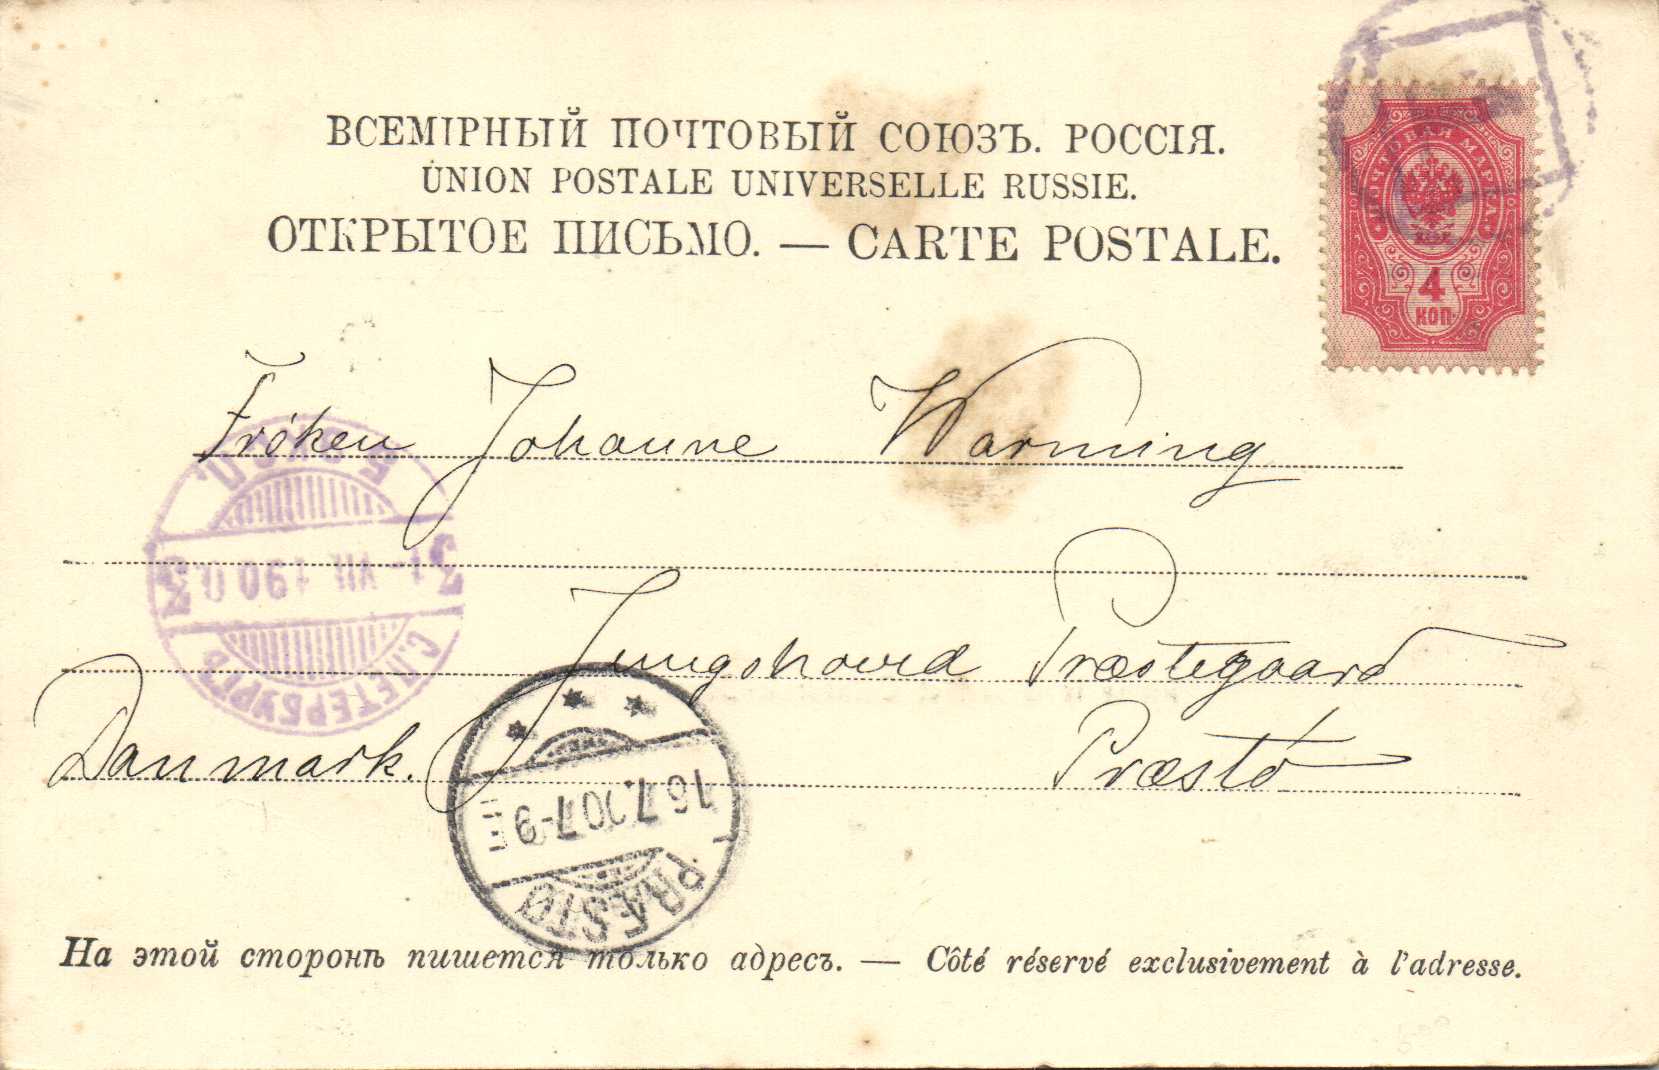 ВСЕМІРНЫЙ ПОЧТОВЫЙ СОЮЗЪ. РОССІЯ.
UNION POSTALE UNIVERSELLE RUSSIE.
ОТКРЫТОЕ ПИСЬМО. — CARTE POSTALE.
ПОЧТОВАЯ МАРКА
4
КОП
Fröken Johanne Warming
Jungshoved Præstegaard
Danmark. Præstö
С.ПЕТЕРБУРГЪ
31 VII 1900
PRÆSTØ
16.7.00 7-9
На этой сторонѣ пишется только адресъ. — Côté réservé exclusivement à l'adresse.